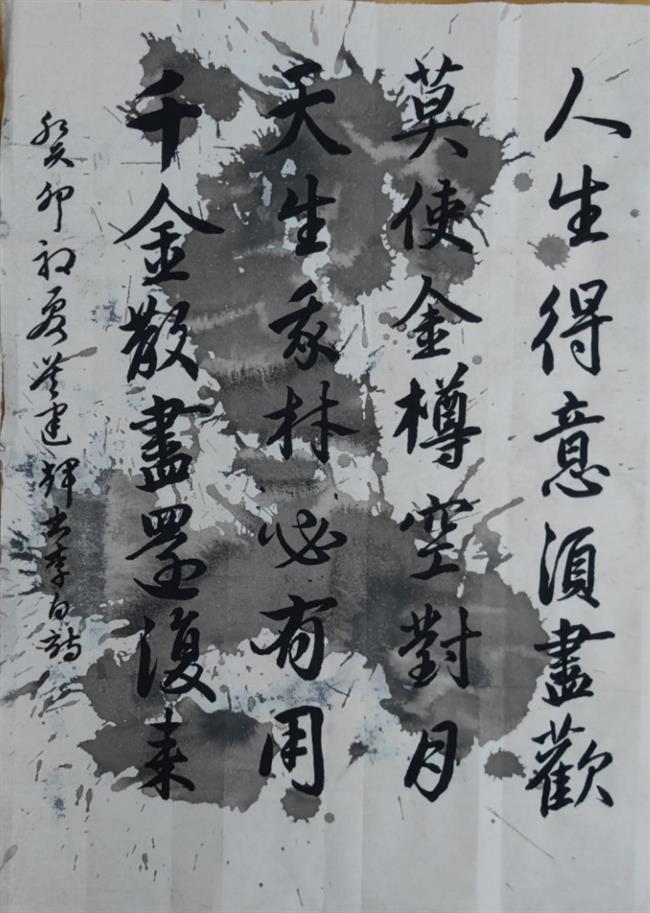 人生得意須盡歡
莫使金樽空對月
天生我林必有用
千金散盡還復来
癸卯初夏建輝书李白詩